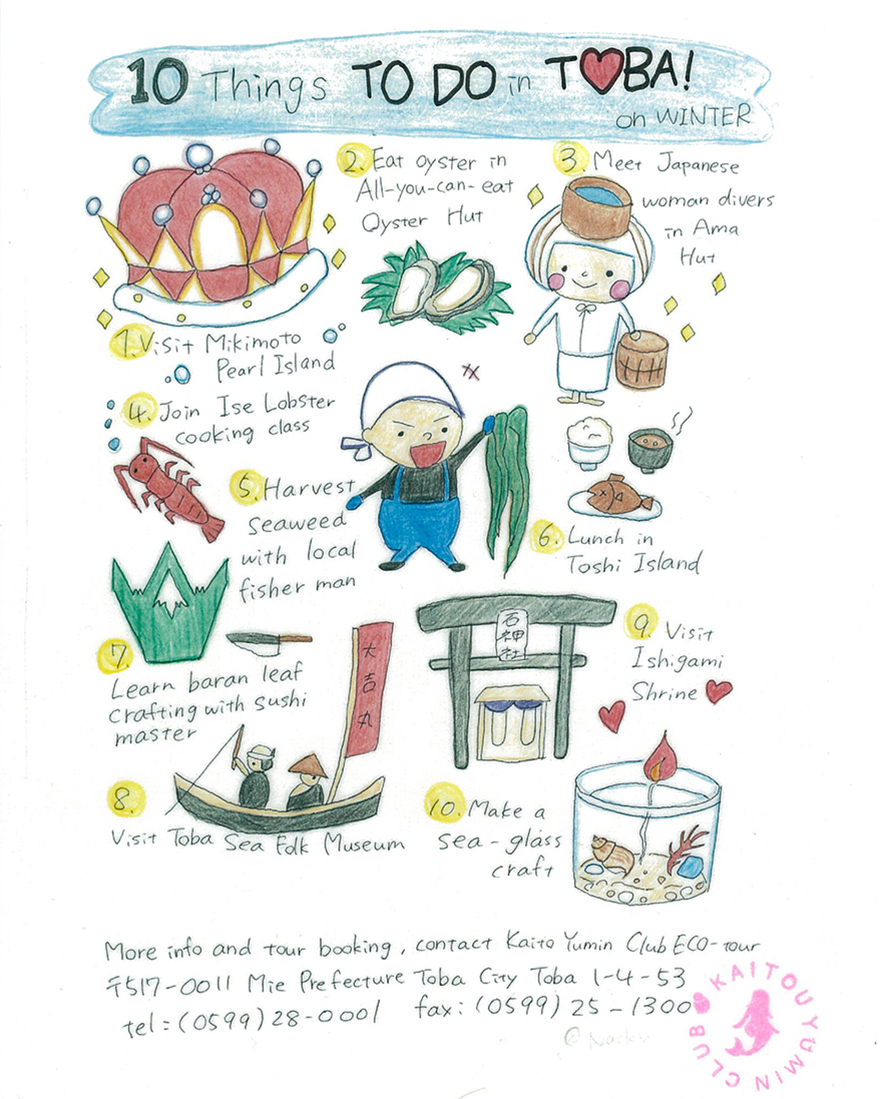 10 Things TO DO in T♥BA!
on WINTER
1. Visit Mikimoto
Pearl Island
2. Eat oyster in
All-you-can-eat
Oyster Hut
3. Meet Japanese
woman divers
in Ama
Hut
4. Join Ise Lobster
cooking class
5. Harvest
seaweed
with local
fisher man
6. Lunch in
Toshi Island
7.
Learn baran leaf
crafting with sushi
master
大吉丸
8.
Visit Toba Sea Folk Museum
石神社
9. Visit
Ishigami
Shrine
10. Make a
sea-glass
craft
More info and tour booking, contact Kaito Yumin Club ECO-tour
〒517-0011 Mie Prefecture Toba City Toba 1-4-53
tel:(0599)28-0001 fax:(0599)25-1300
KAITOU YUMIN CLUB